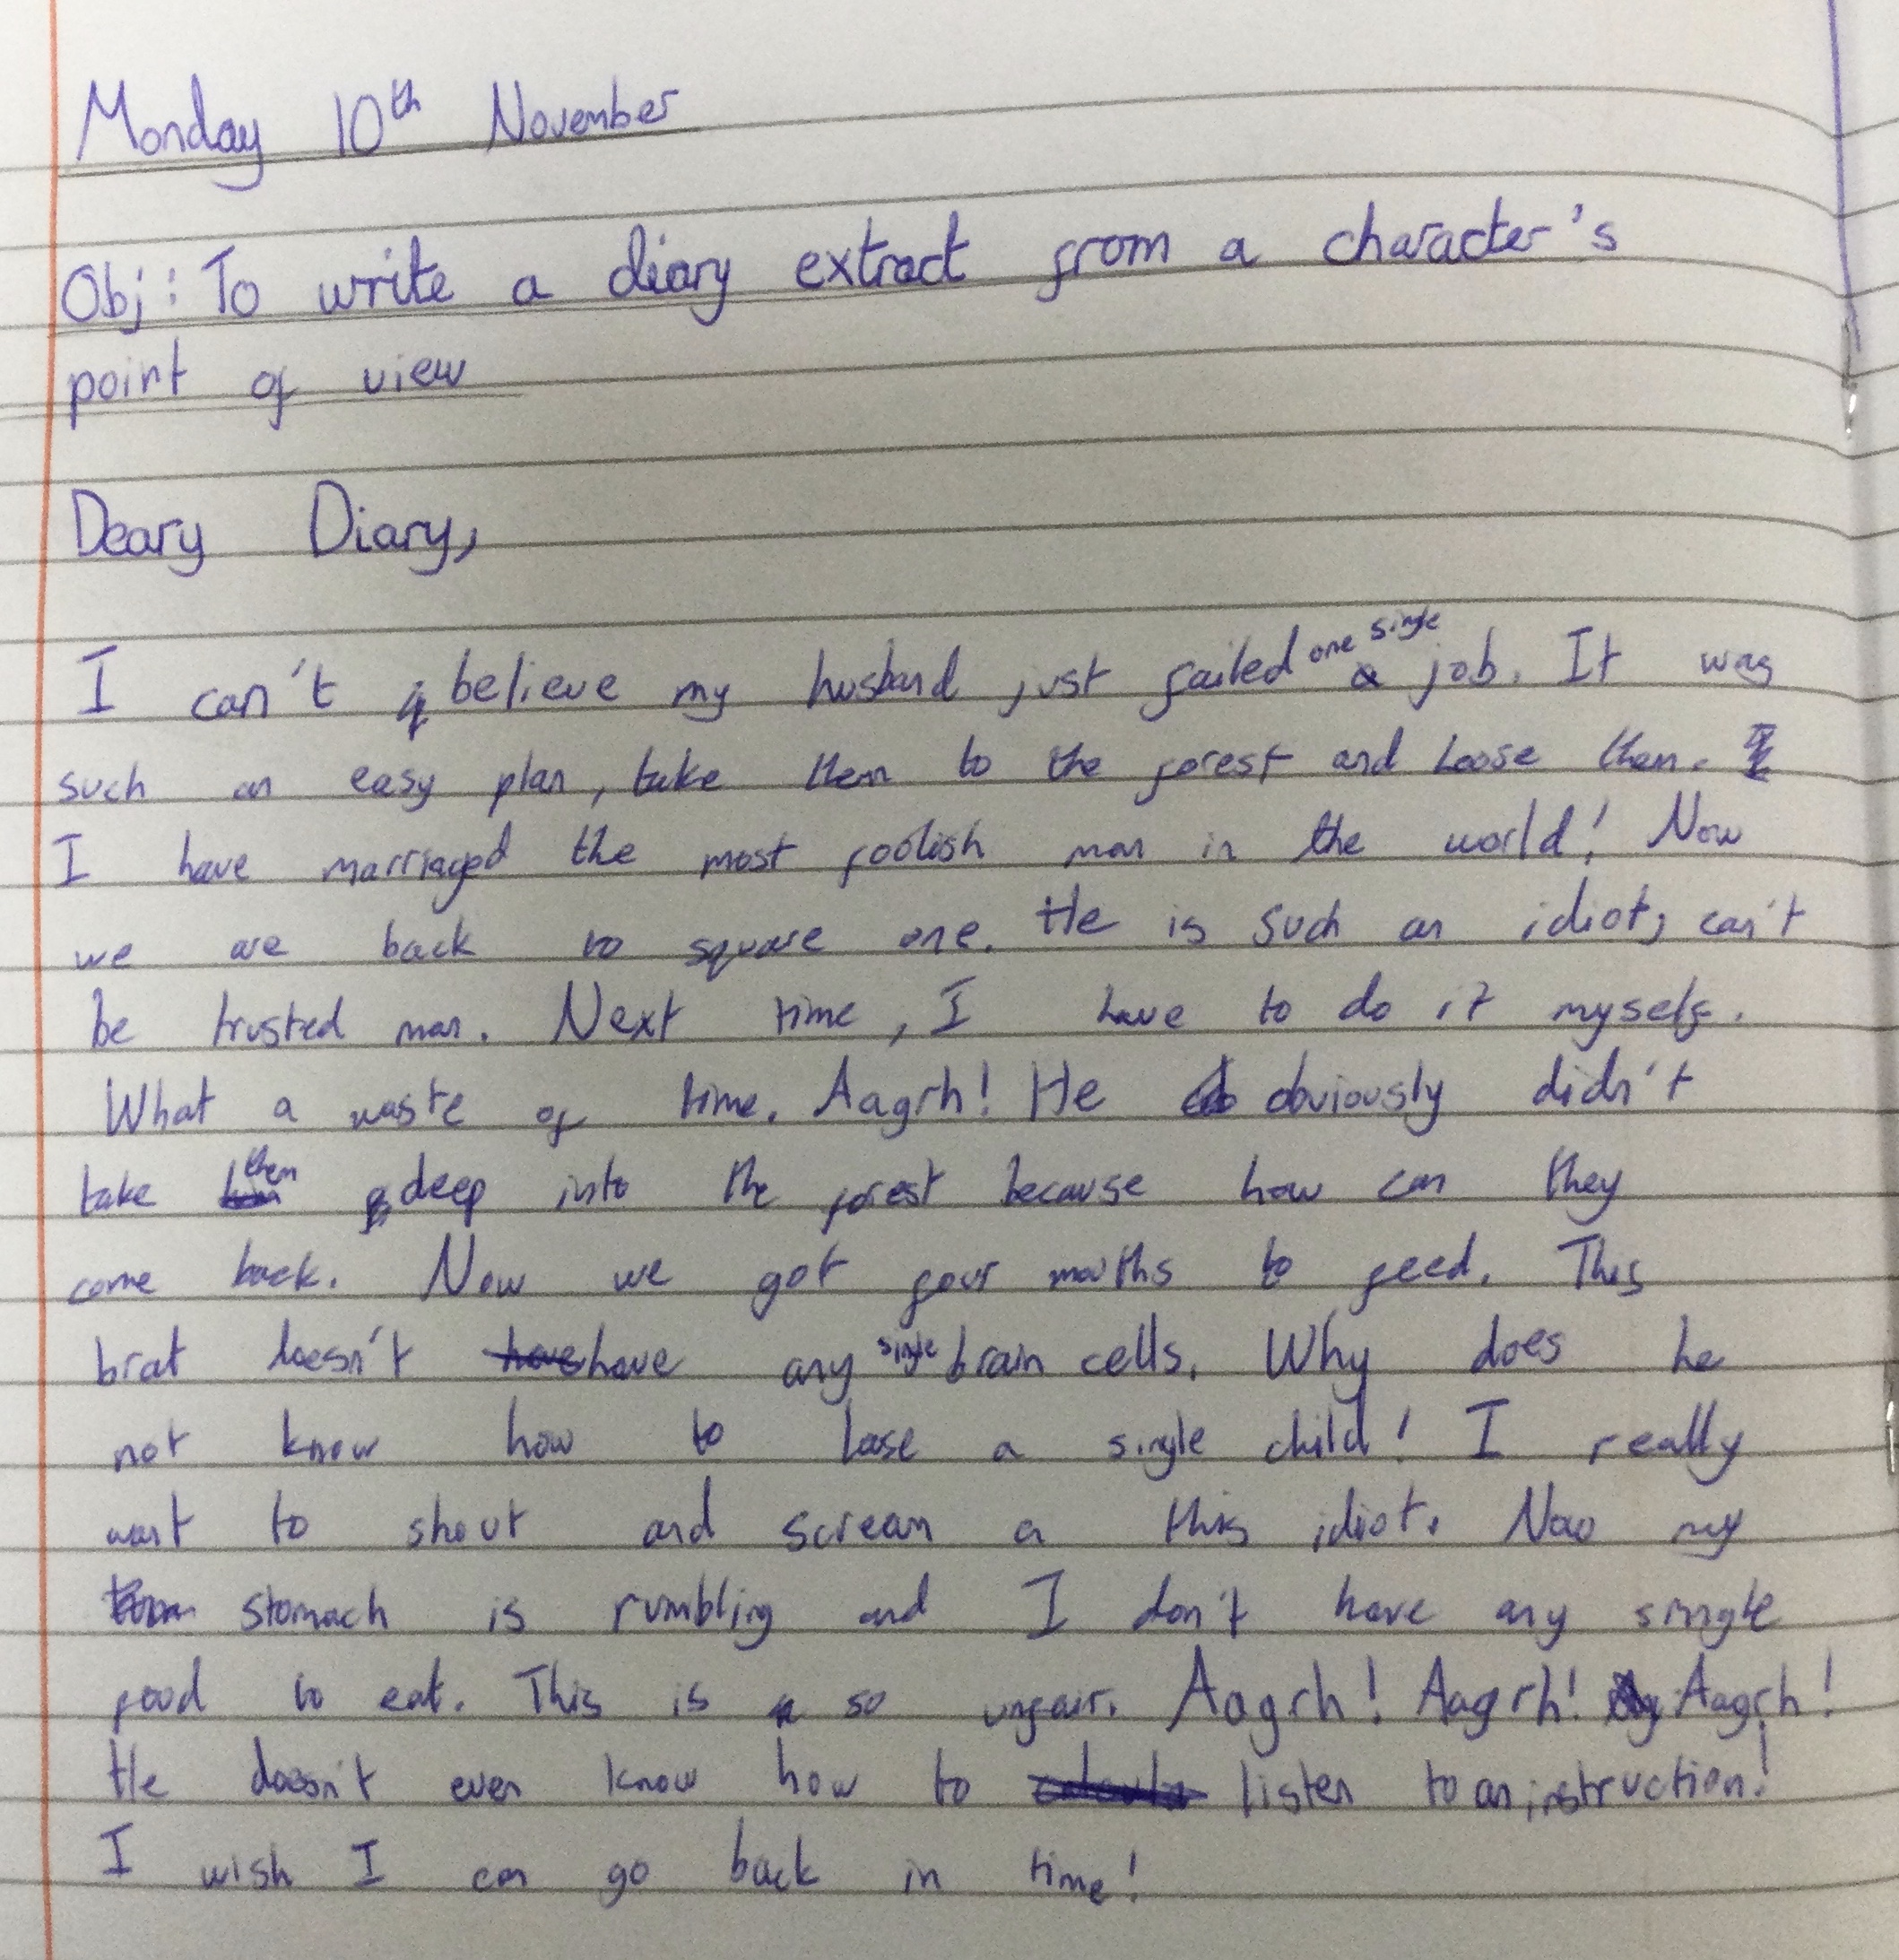 Monday 10th November
Obj: To write a diary extract from a character's
point of view
Deary Diary,
I can't believe my husband just failed one single job. It was
such an easy plan, take them to the forest and loose them.
I have marriaged the most foolish man in the world! Now
we are back to square one. He is such an idiot, can't
be trusted man. Next time, I have to do it myself.
What a waste of time. Aagrh! He obviously didn't
take them deep into the forest because how can they
come back. Now we got four mouths to feed. This
brat doesn't have any single brain cells. Why does he
not know how to lose a single child! I really
want to shout and scream a this idiot. Now my
stomach is rumbling and I don't have any single
food to eat. This is so unfair. Aagrh! Aagrh! Aagrh!
He doesn't even know how to listen to an instruction!
I wish I can go back in time!